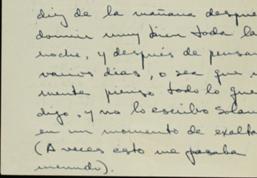 diez de la mañana despué
dormir muy bien toda la
noche, y después de pensar
varios días, o sea que
mente pienso todo lo que
digo, y no lo escribo solam
en un momento de exalta
(A veces esto me pasaba
menudo).